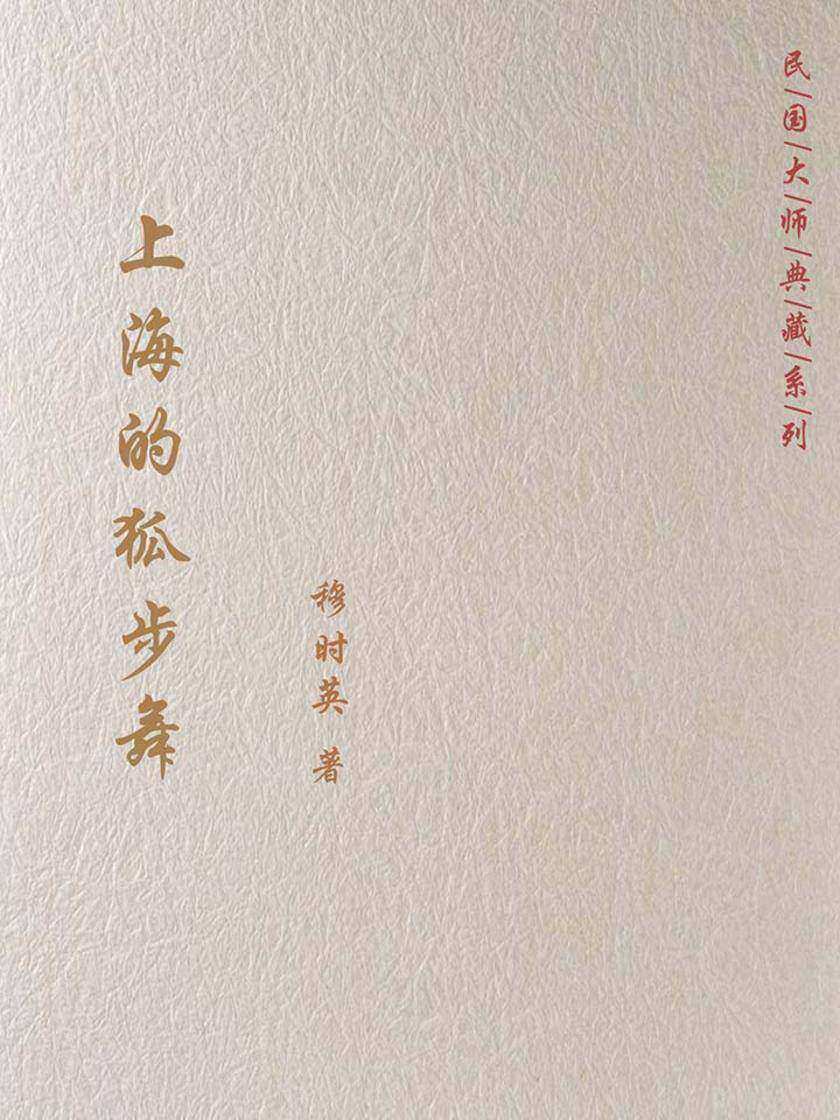 民/国/大/师/典/藏/系/列
穆时英 著
上海的狐步舞